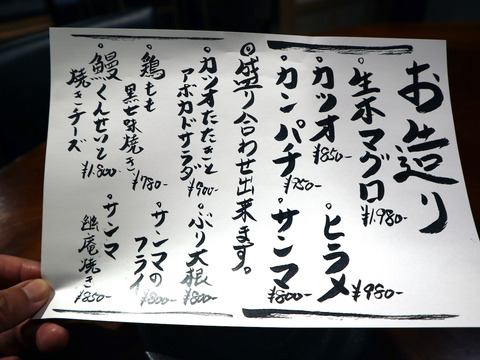 お造り
・生本マグロ ¥1,980-
・カツオ ¥850-
・ヒラメ ¥980-
・カンパチ ¥750-
・サンマ ¥800-
◎盛り合わせ出来ます。
・カツオたたきと
アボカドサラダ ¥900-
・ぶり大根 ¥800-
・鶏もも
黒七味焼き ¥780-
・サンマの
フライ ¥800-
・鰻くんせいと
焼きチーズ ¥1,800-
・サンマ
幽庵焼き ¥850-